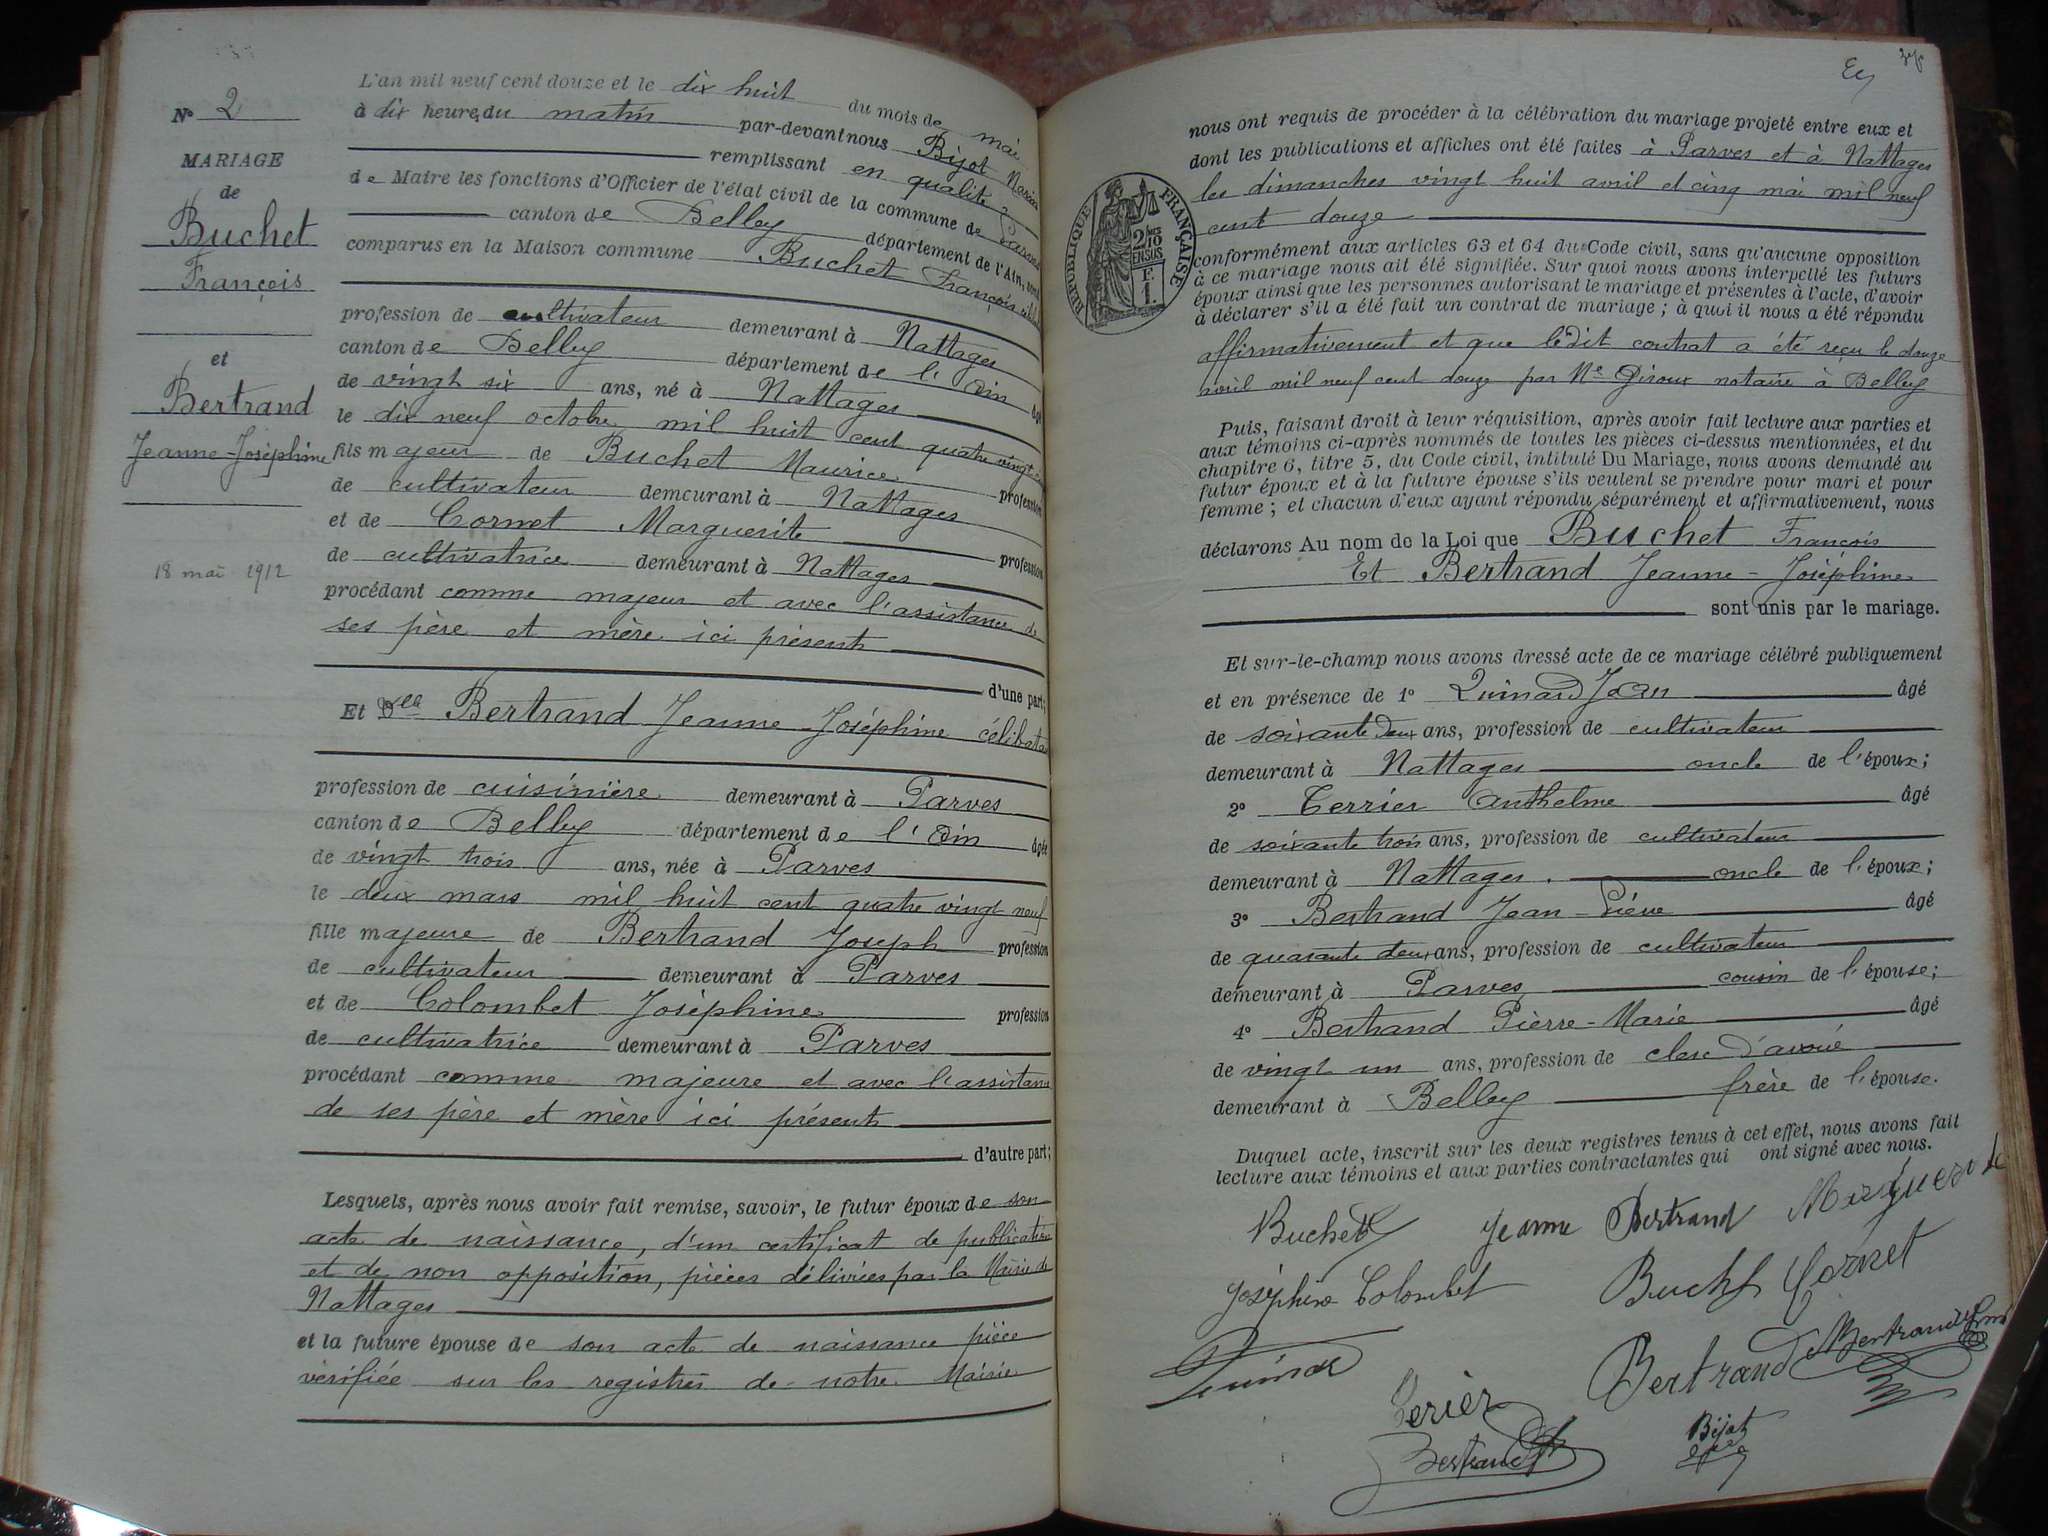 N° 2
MARIAGE
de
Buchet
François
et
Bertrand
Jeanne-Joséphine
18 mai 1912
L'an mil neuf cent douze et le dix huit du mois de mai
à dix heure du matin par-devant nous Bijot Marius
remplissant en qualité
de Maire les fonctions d'Officier de l'état civil de la commune de Parves
canton de Belley département de l'Ain, sont
comparus en la Maison commune Buchet François
profession de cultivateur demeurant à Nattages
canton de Belley département de l'Ain âgé
de vingt six ans, né à Nattages
le dix neuf octobre mil huit cent quatre vingt
fils majeur de Buchet Maurice profession
de cultivateur demeurant à Nattages
et de Cornet Marguerite profession
de cultivatrice demeurant à Nattages
procédant comme majeur et avec l'assistance de
ses père et mère ici présents
d'une part;
Et Dlle Bertrand Jeanne-Joséphine célibataire
profession de cuisinière demeurant à Parves
canton de Belley département de l'Ain âgée
de vingt trois ans, née à Parves
le deux mars mil huit cent quatre vingt neuf
fille majeure de Bertrand Joseph profession
de cultivateur demeurant à Parves
et de Colombet Joséphine profession
de cultivatrice demeurant à Parves
procédant comme majeure et avec l'assistance
de ses père et mère ici présents
d'autre part;
Lesquels, après nous avoir fait remise, savoir, le futur époux de son
acte de naissance, d'un certificat de publication
et de non opposition, pièces délivrées par la Mairie de
Nattages
et la future épouse de son acte de naissance pièce
vérifiée sur les registres de notre Mairie
nous ont requis de procéder à la célébration du mariage projeté entre eux et
dont les publications et affiches ont été faites à Parves et à Nattages
les dimanches vingt huit avril et cinq mai mil neuf
cent douze
RÉPUBLIQUE FRANÇAISE
2/10
EN SUS
F.
1.
conformément aux articles 63 et 64 du Code civil, sans qu'aucune opposition
à ce mariage nous ait été signifiée. Sur quoi nous avons interpellé les futurs
époux ainsi que les personnes autorisant le mariage et présentes à l'acte, d'avoir
à déclarer s'il a été fait un contrat de mariage; à quoi il nous a été répondu
affirmativement et que ledit contrat a été reçu le douze
avril mil neuf cent douze par Me Giroux notaire à Belley
Puis, faisant droit à leur réquisition, après avoir fait lecture aux parties et
aux témoins ci-après nommés de toutes les pièces ci-dessus mentionnées, et du
chapitre 6, titre 5, du Code civil, intitulé Du Mariage, nous avons demandé au
futur époux et à la future épouse s'ils veulent se prendre pour mari et pour
femme; et chacun d'eux ayant répondu séparément et affirmativement, nous
déclarons Au nom de la Loi que Buchet François
Et Bertrand Jeanne-Joséphine
sont unis par le mariage.
Et sur-le-champ nous avons dressé acte de ce mariage célébré publiquement
et en présence de 1° Quinard Jean âgé
de soixante deux ans, profession de cultivateur
demeurant à Nattages oncle de l'époux;
2° Terrier Anthelme âgé
de soixante trois ans, profession de cultivateur
demeurant à Nattages oncle de l'époux;
3° Bertrand Jean-Pierre âgé
de quarante deux ans, profession de cultivateur
demeurant à Parves cousin de l'épouse;
4° Bertrand Pierre-Marie âgé
de vingt un ans, profession de clerc d'avoué
demeurant à Belley frère de l'épouse.
Duquel acte, inscrit sur les deux registres tenus à cet effet, nous avons fait
lecture aux témoins et aux parties contractantes qui ont signé avec nous.
Buchet Jeanne Bertrand Marguerite
Joséphine Colombet Buchet Cornet
Quinard Bertrand Bertrand
Terier
Bertrand Bijot